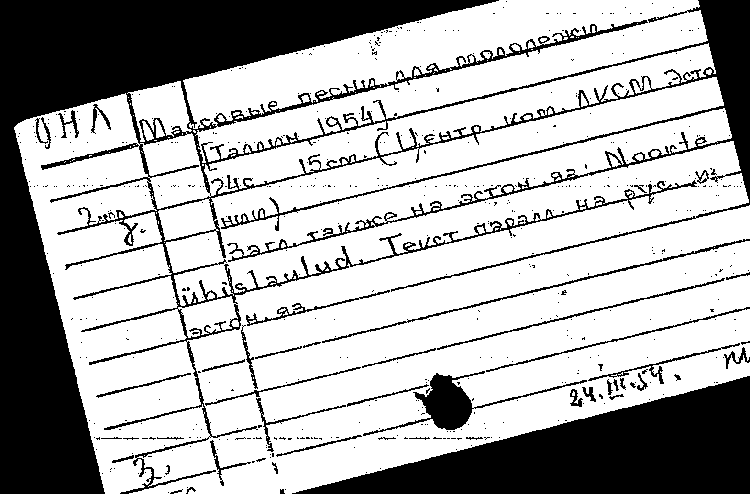 ОНЛ Массовые песни для молодежи.
[Таллин, 1954].
24с. 15см. (Центр. ком. ЛКСМ Эсто
нии).
Загл. также на эстон. яз.: Noorte
ühislaulud. Текст паралл. на рус. и
эстон. яз.
24.III.54.
3.